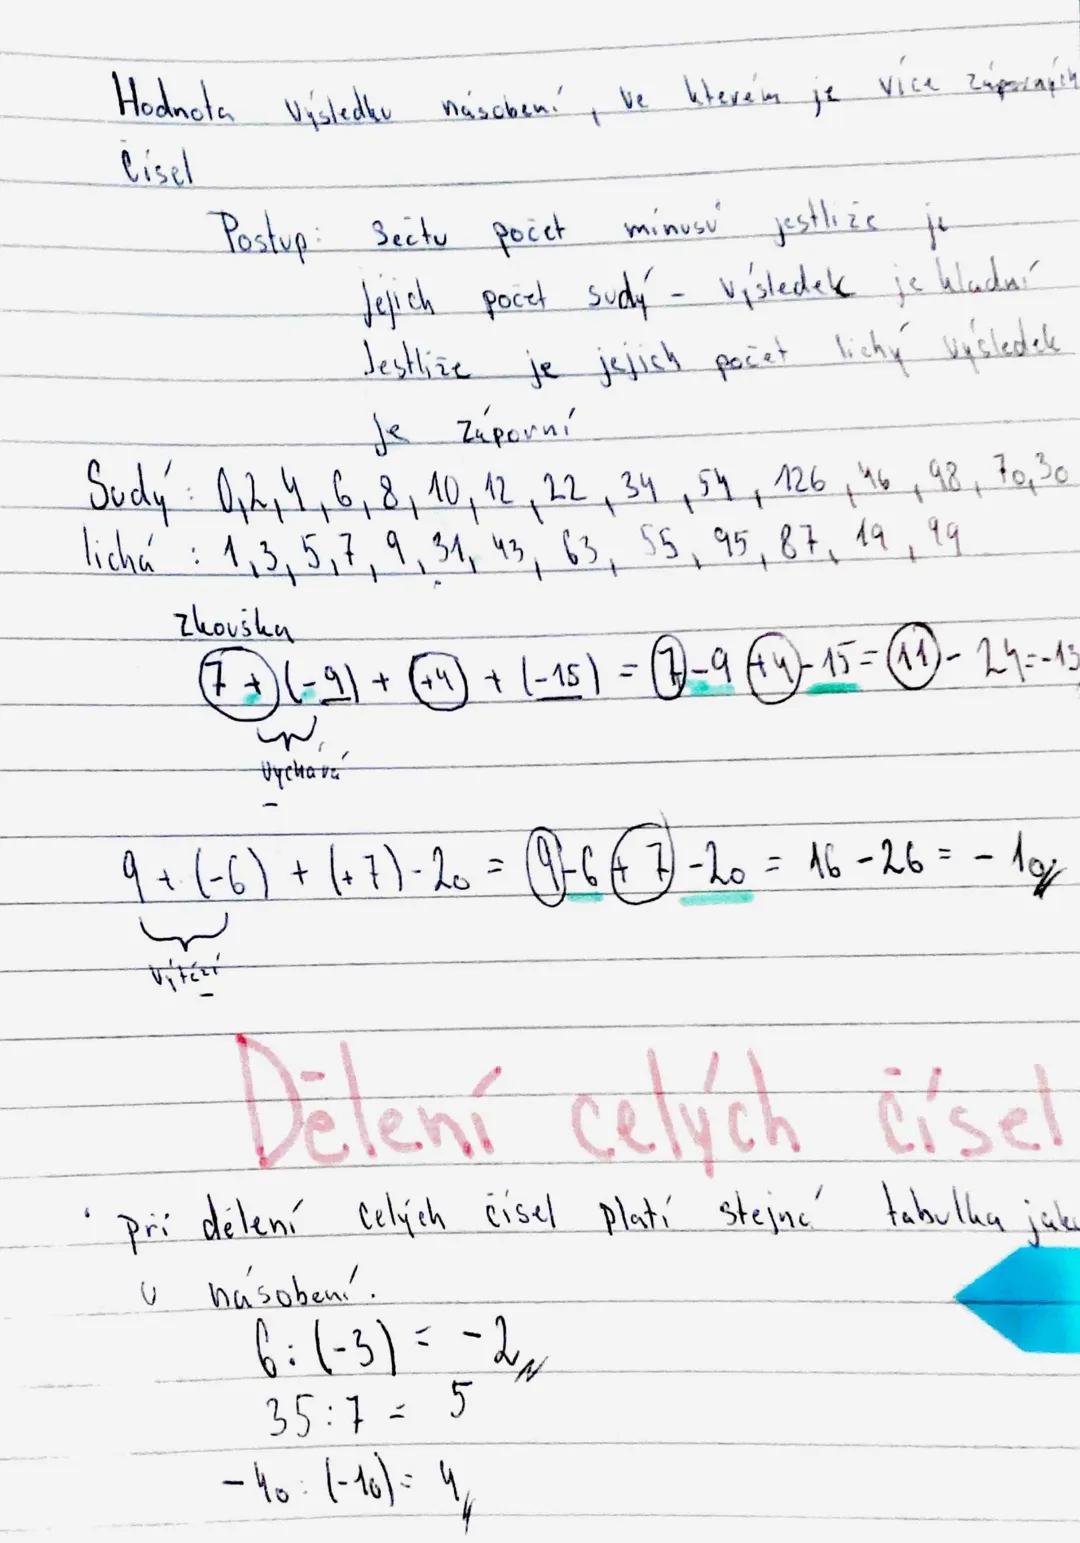 Hodnota výsledku násobení, ve kterém je více záporných
čísel
Postup: Sečtu počet mínusů jestliže je
jejich počet sudý - výsledek je kladní
Jestliže je jejich počet lichý výsledek
je záporní
Sudý: 0,2,4,6,8,10,12,22,34,54,126,46,98,70,30
lichá: 1,3,5,7,9,31,43,63,55,95,87,19,99
Zkouška
7+(-9)+(+4)+(-15)=7-9+4-15=11-24=-13
vychává
-
9+(-6)+(+7)-20=9-6+7-20=16-26=-10
vítězí
-
Dělení celých čísel
• při dělení celých čísel platí stejná tabulka jako
u násobení.
6:(-3)=-2
35:7=5
-40:(-10)=4